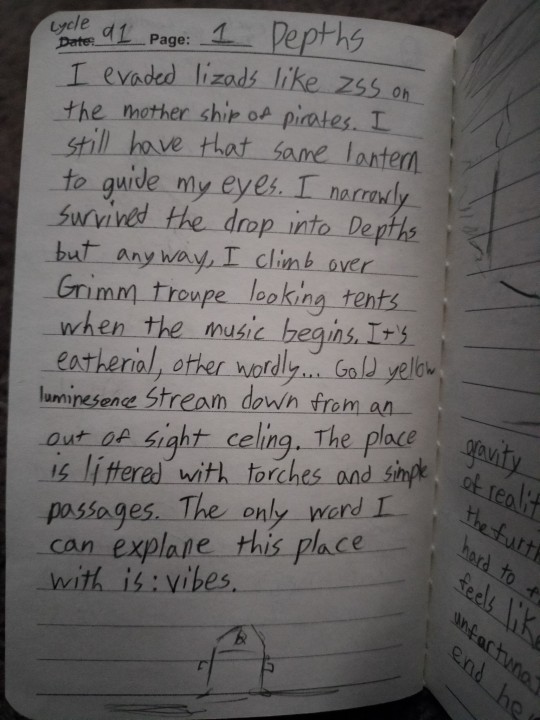 Cycle
Date: 91 Page: 1 Depths
I evaded lizads like ZSS on
the mother ship of pirates. I
still have that same lantern
to guide my eyes. I narrowly
survived the drop into Depths
but anyway, I climb over
Grimm troupe looking tents
when the music begins. It's
eatherial, other wordly... Gold yellow
luminesence stream down from an
out of sight celing. The place
is littered with torches and simple
passages. The only word I
can explane this place
with is: vibes.
gravity
of realit
the furth
hard to
feels like
unfortunat
end he